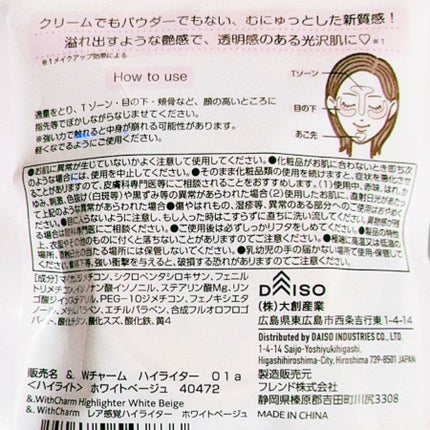 クリームでもパウダーでもない、むにゅっとした新質感！
溢れ出すような艶感で、透明感のある光沢肌に♡※1
※1メイクアップ効果による
How to use
Tゾーン
目の下
あご先
適量をとり、Tゾーン・目の下・頬骨など、顔の高いところに
指先等でぼかしながらなじませてください。
※強い力で触れると中身が崩れる可能性があります。
軽くなでるようにご使用ください。
●お肌に異常が生じていないかよく注意して使用してください。●化粧品がお肌に合わないとき即ち次
のような場合には、使用を中止してください。●そのまま化粧品類の使用を続けますと、症状を悪化させ
ることがありますので、皮膚科専門医等にご相談されることをおすすめします。(1)使用中、赤味、はれ、か
ゆみ、刺激、色抜け(白斑等)や黒ずみ等の異常があらわれた場合(2)使用したお肌に、直射日光があたっ
て上記のような異常があらわれた場合●傷やはれもの、湿疹等、異常のある部位へのご使用はおやめく
ださい。●目に入らないように注意し、もし入った時はこすらずに直ちに洗い流してください。
場合は眼科専門医にご相談ください。●ご使用後は必ずしっかりフタをしめてください。●製品の特性
上、衣類やその他のものに付くと落ちないことがありますのでご注意ください。●極端に高温又は低温の
場所、直射日光の当たる場所には保管しないでください。●乳幼児の手の届かない場所で使用・保管して
ください。
強い衝撃を与えると破損する恐れがありますのでご注意ください。
[成分]マイカ、ジメチコン、シクロペンタシロキサン、フェニル
トリメチコン、イソノナン酸イソノニル、ステアリン酸Mg、リン
ゴ酸ジイソステアリル、PEG-10ジメチコン、フェノキシエタ
ノール、メチルパラベン、エチルパラベン、合成フルオロフロゴ
パイト、酸化チタン、酸化スズ、酸化鉄、黄4
DAISO
(株)大創産業
広島県東広島市西条吉行東1-4-14
Distributed by DAISO INDUSTRIES CO., LTD.
1-4-14 Saijo-Yoshiyukihigashi,
Higashihiroshima-City, Hiroshima 739-8501 JAPAN
製造販売元
フレンド株式会社
静岡県榛原郡吉田町川尻3308
MADE IN CHINA
販売名 &. Wチャーム ハイライター 01a
<ハイライト> ホワイトベージュ 40472
&.WithCharm Highlighter White Beige
&.WithCharm レア感覚ハイライター ホワイトベージュ